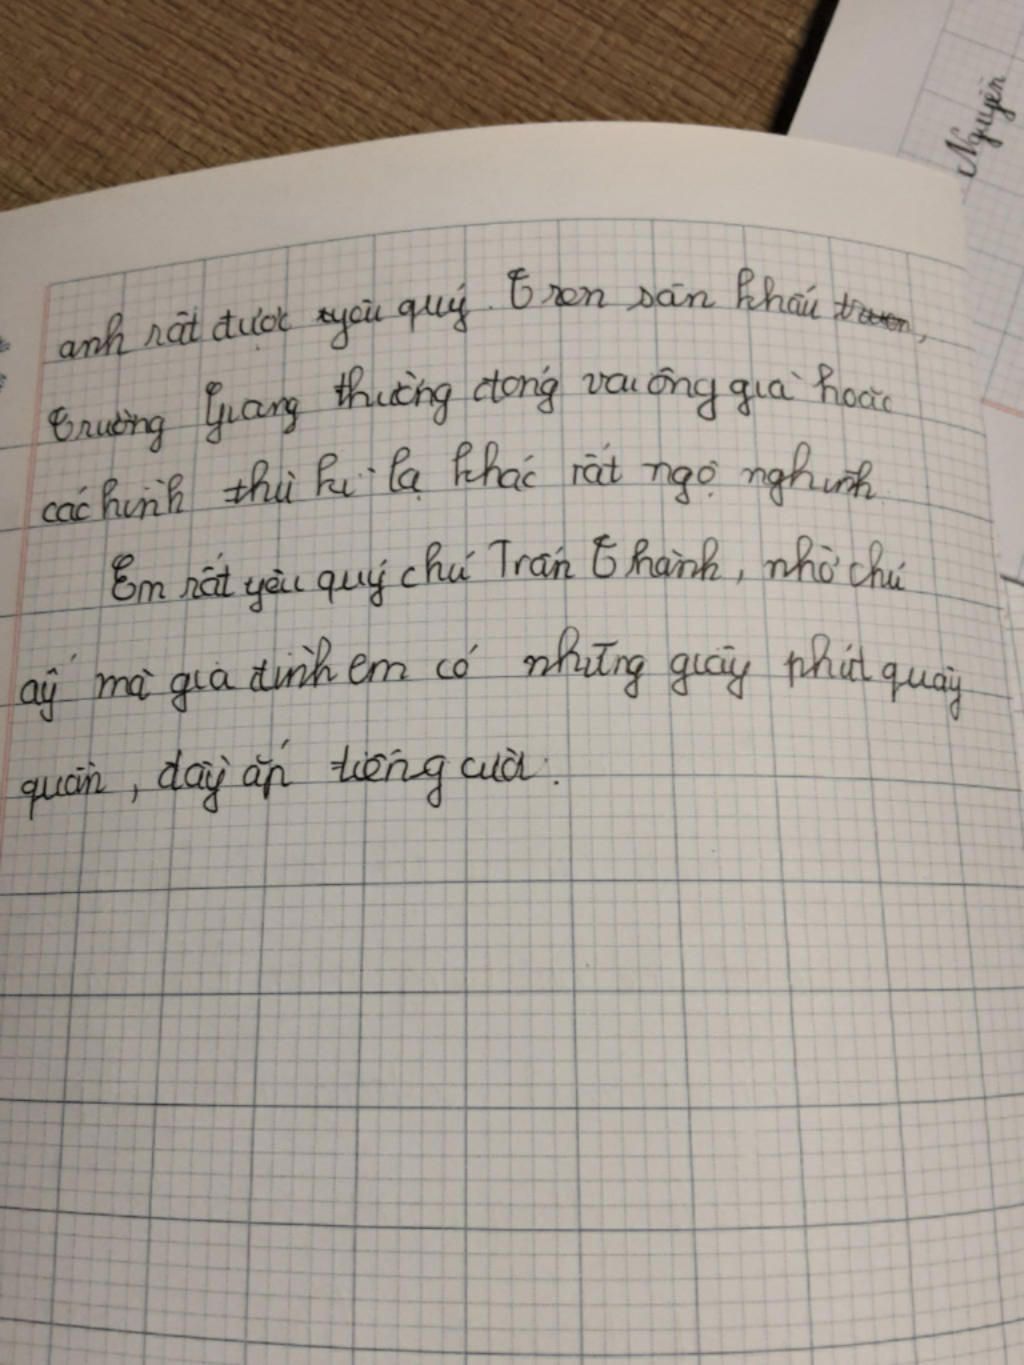 Nguyên
anh rất được yêu quý. Trên sân khấu,
Trường Giang thường đóng vai ông già hoặc
các hình thù kì lạ khác rất ngộ nghĩnh
Em rất yêu quý chú Trấn Thành, nhờ chú
ấy mà gia đình em có những giây phút quây
quần, đầy ắp tiếng cười.